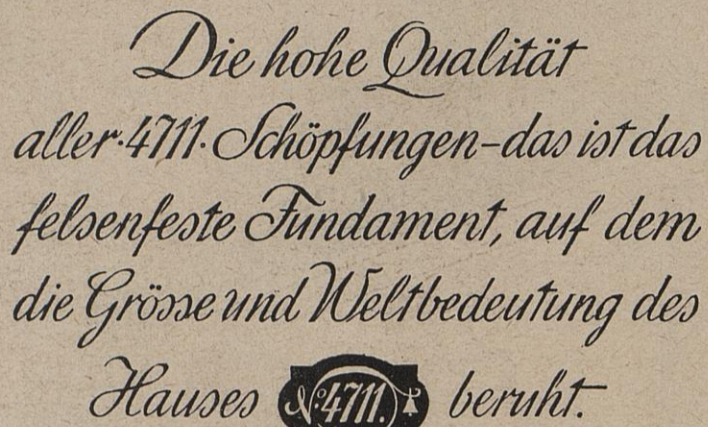 Die hohe Qualität
aller·4711·Schöpfungen-das ist das
felsenfeste Fundament, auf dem
die Grösse und Weltbedeutung des
Hauses №4711. beruht.